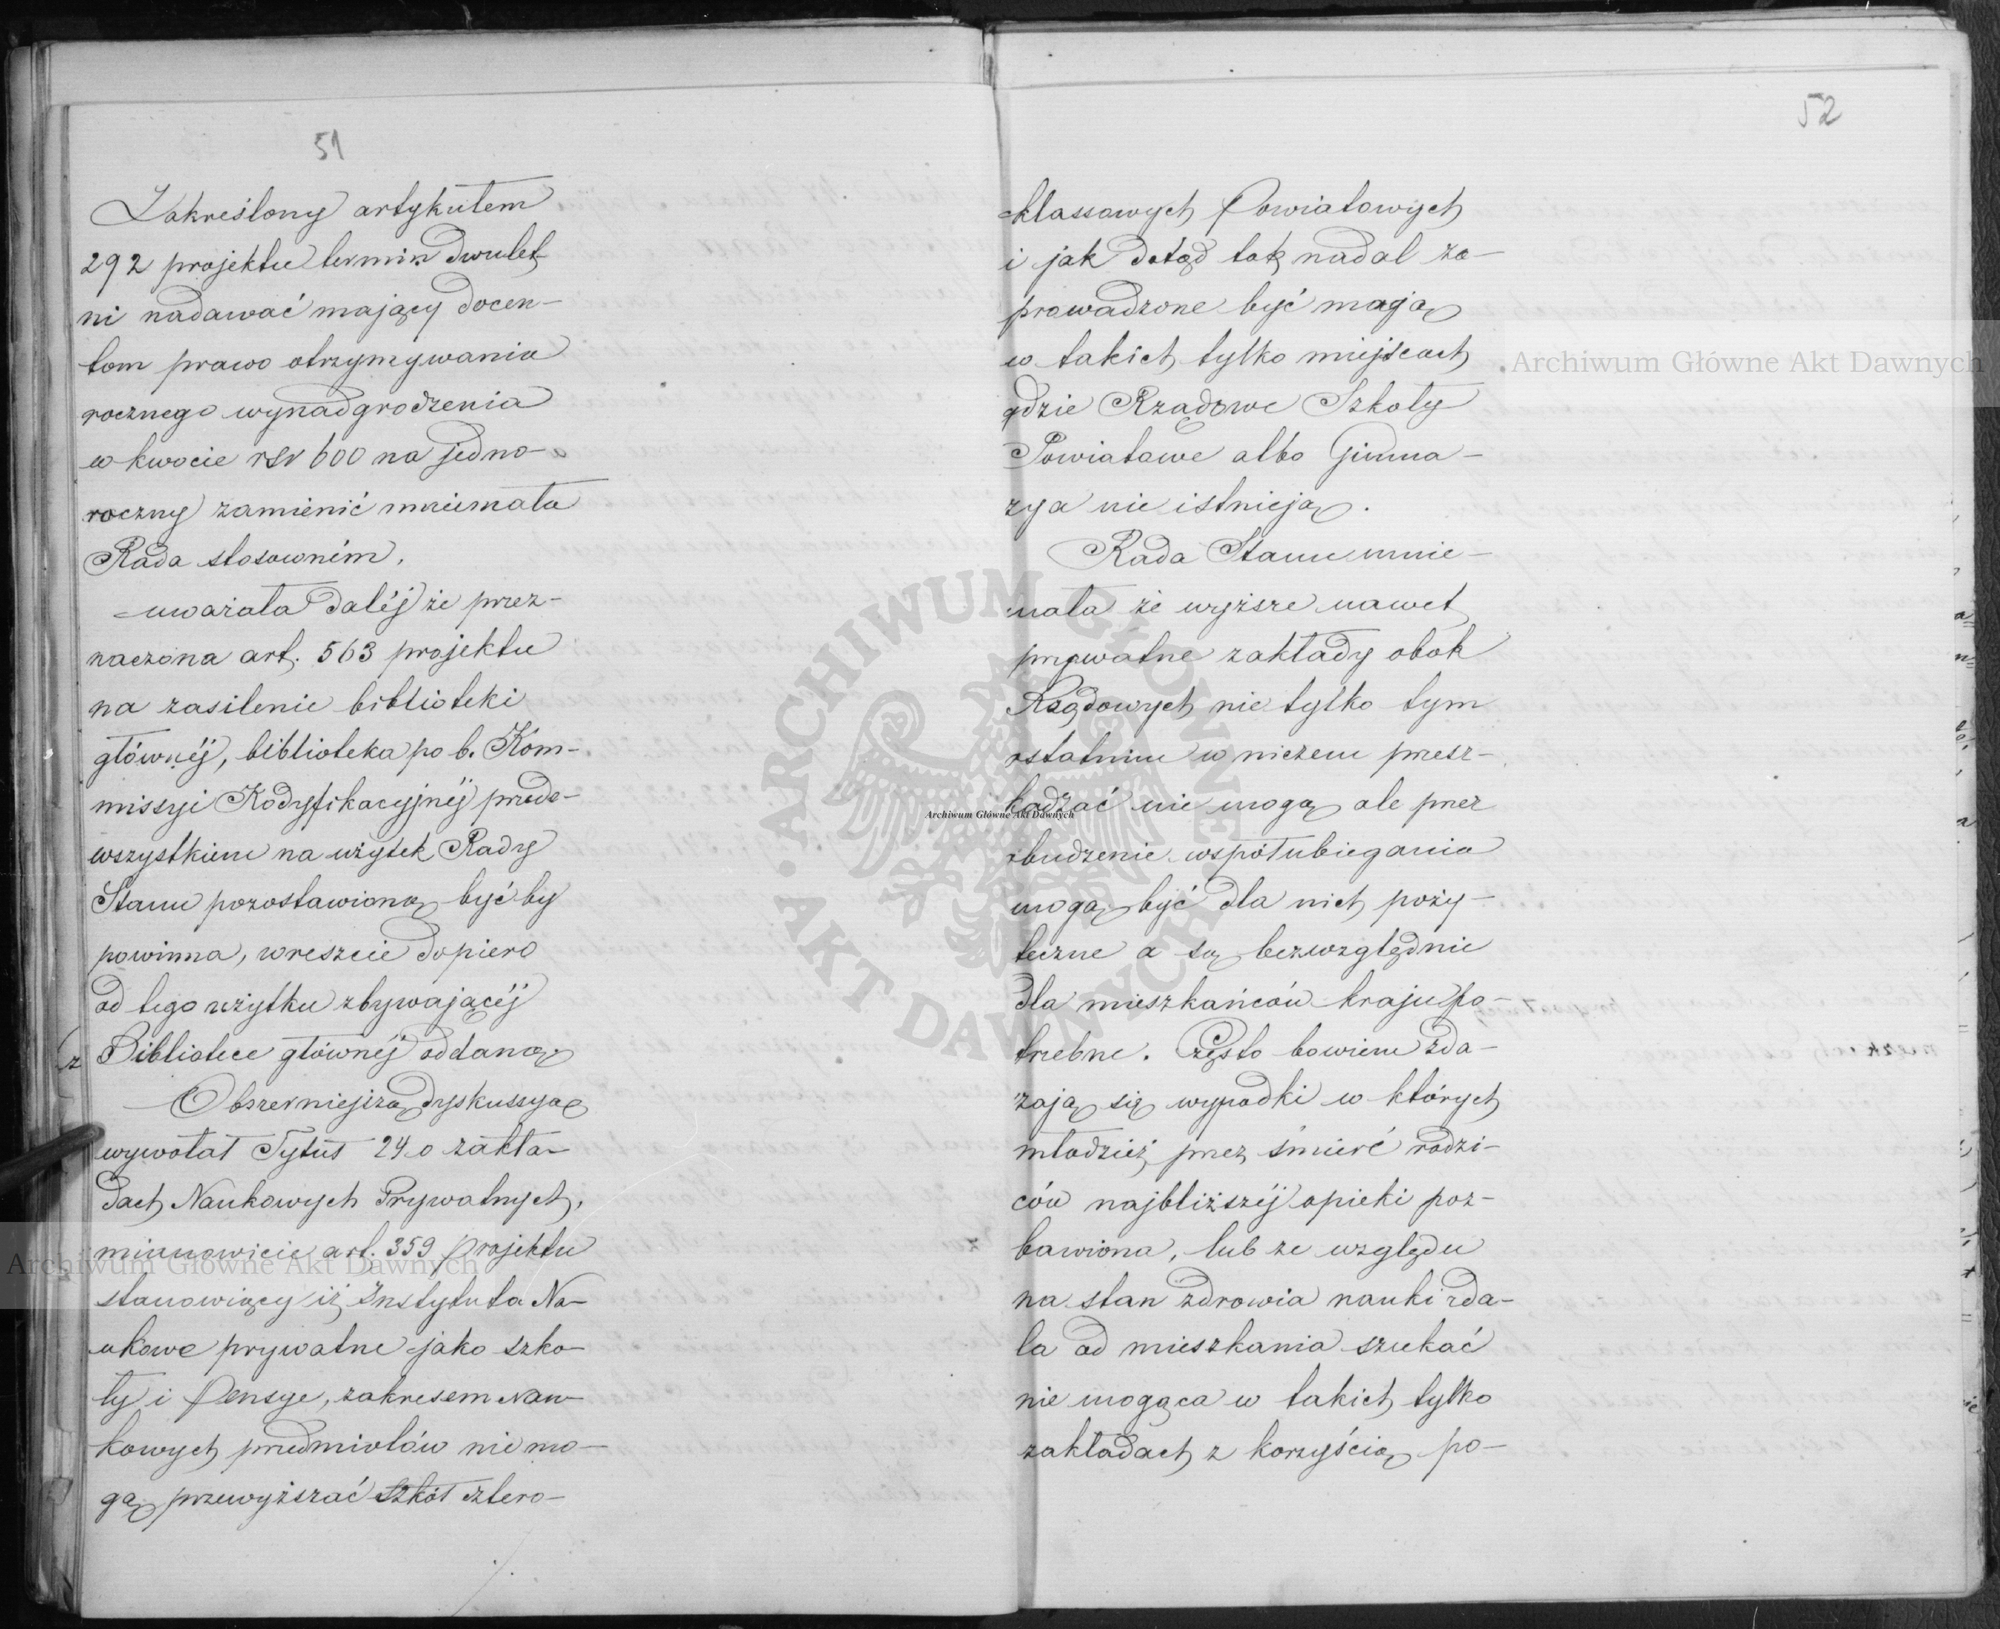 51
Zakreślony artykułem
292 projektu termin dwulet
ni nadawać mający docen-
tom prawo otrzymywania
rocznego wynadgrodzenia
w kwocie rsr 600 na jedno-
roczny zamienić mniemała
Rada stosowném.
uważała daléj że prze-
naczona art. 563 projektu
na zasilenie biblioteki
głównéj, biblioteka po b. Kom-
missyi Kodyfikacyjnéj przede-
wszystkiem na użytek Rady
Stanu pozostawioną być by
powinna, wreszcie dopiero
od tego użytku zbywającéj
Bibliotece głównéj oddaną
Obszerniejszą dyskussyą
wywołał Tytuł 24 o zakła-
dach Naukowych Prywatnych,
mianowicie art. 359 projektu
stanowiący iż Instytuta Na-
ukowe prywatne jako szko-
ły i Pensye, zakresem Nau-
kowych przedmiotów nie mo-
gą przewyższać szkół cztero-
52
klassowych Powiatowych
i jak dotąd tak nadal za-
prowadzone być mają
w takich tylko miejscach
gdzie Rządowe Szkoły
Powiatowe albo Gimna-
zya nie istnieją.
Rada Stanu mnie-
mała że wyższe nawet
prywatne zakłady obok
Rządowych nie tylko tym
ostatnim w niczem przesz-
kadzać nie mogą ale przez
zbudzenie współubiegania
mogą być dla nich poży-
teczne a są bezwzględnie
dla mieszkańców kraju po-
trzebne. Często bowiem zda-
rzają się wypadki w których
młodzież przez śmierć rodzi-
ców najbliższéj opieki poz-
bawiona, lub ze względu
na stan zdrowia nauki zda-
la od mieszkania szukać
nie mogąca w takich tylko
zakładach z korzyścią po-
Archiwum Główne Akt Dawnych
Archiwum Główne Akt Dawnych
Archiwum Główne Akt Dawnych
ARCHIWUM GŁÓWNE • AKT DAWNYCH •